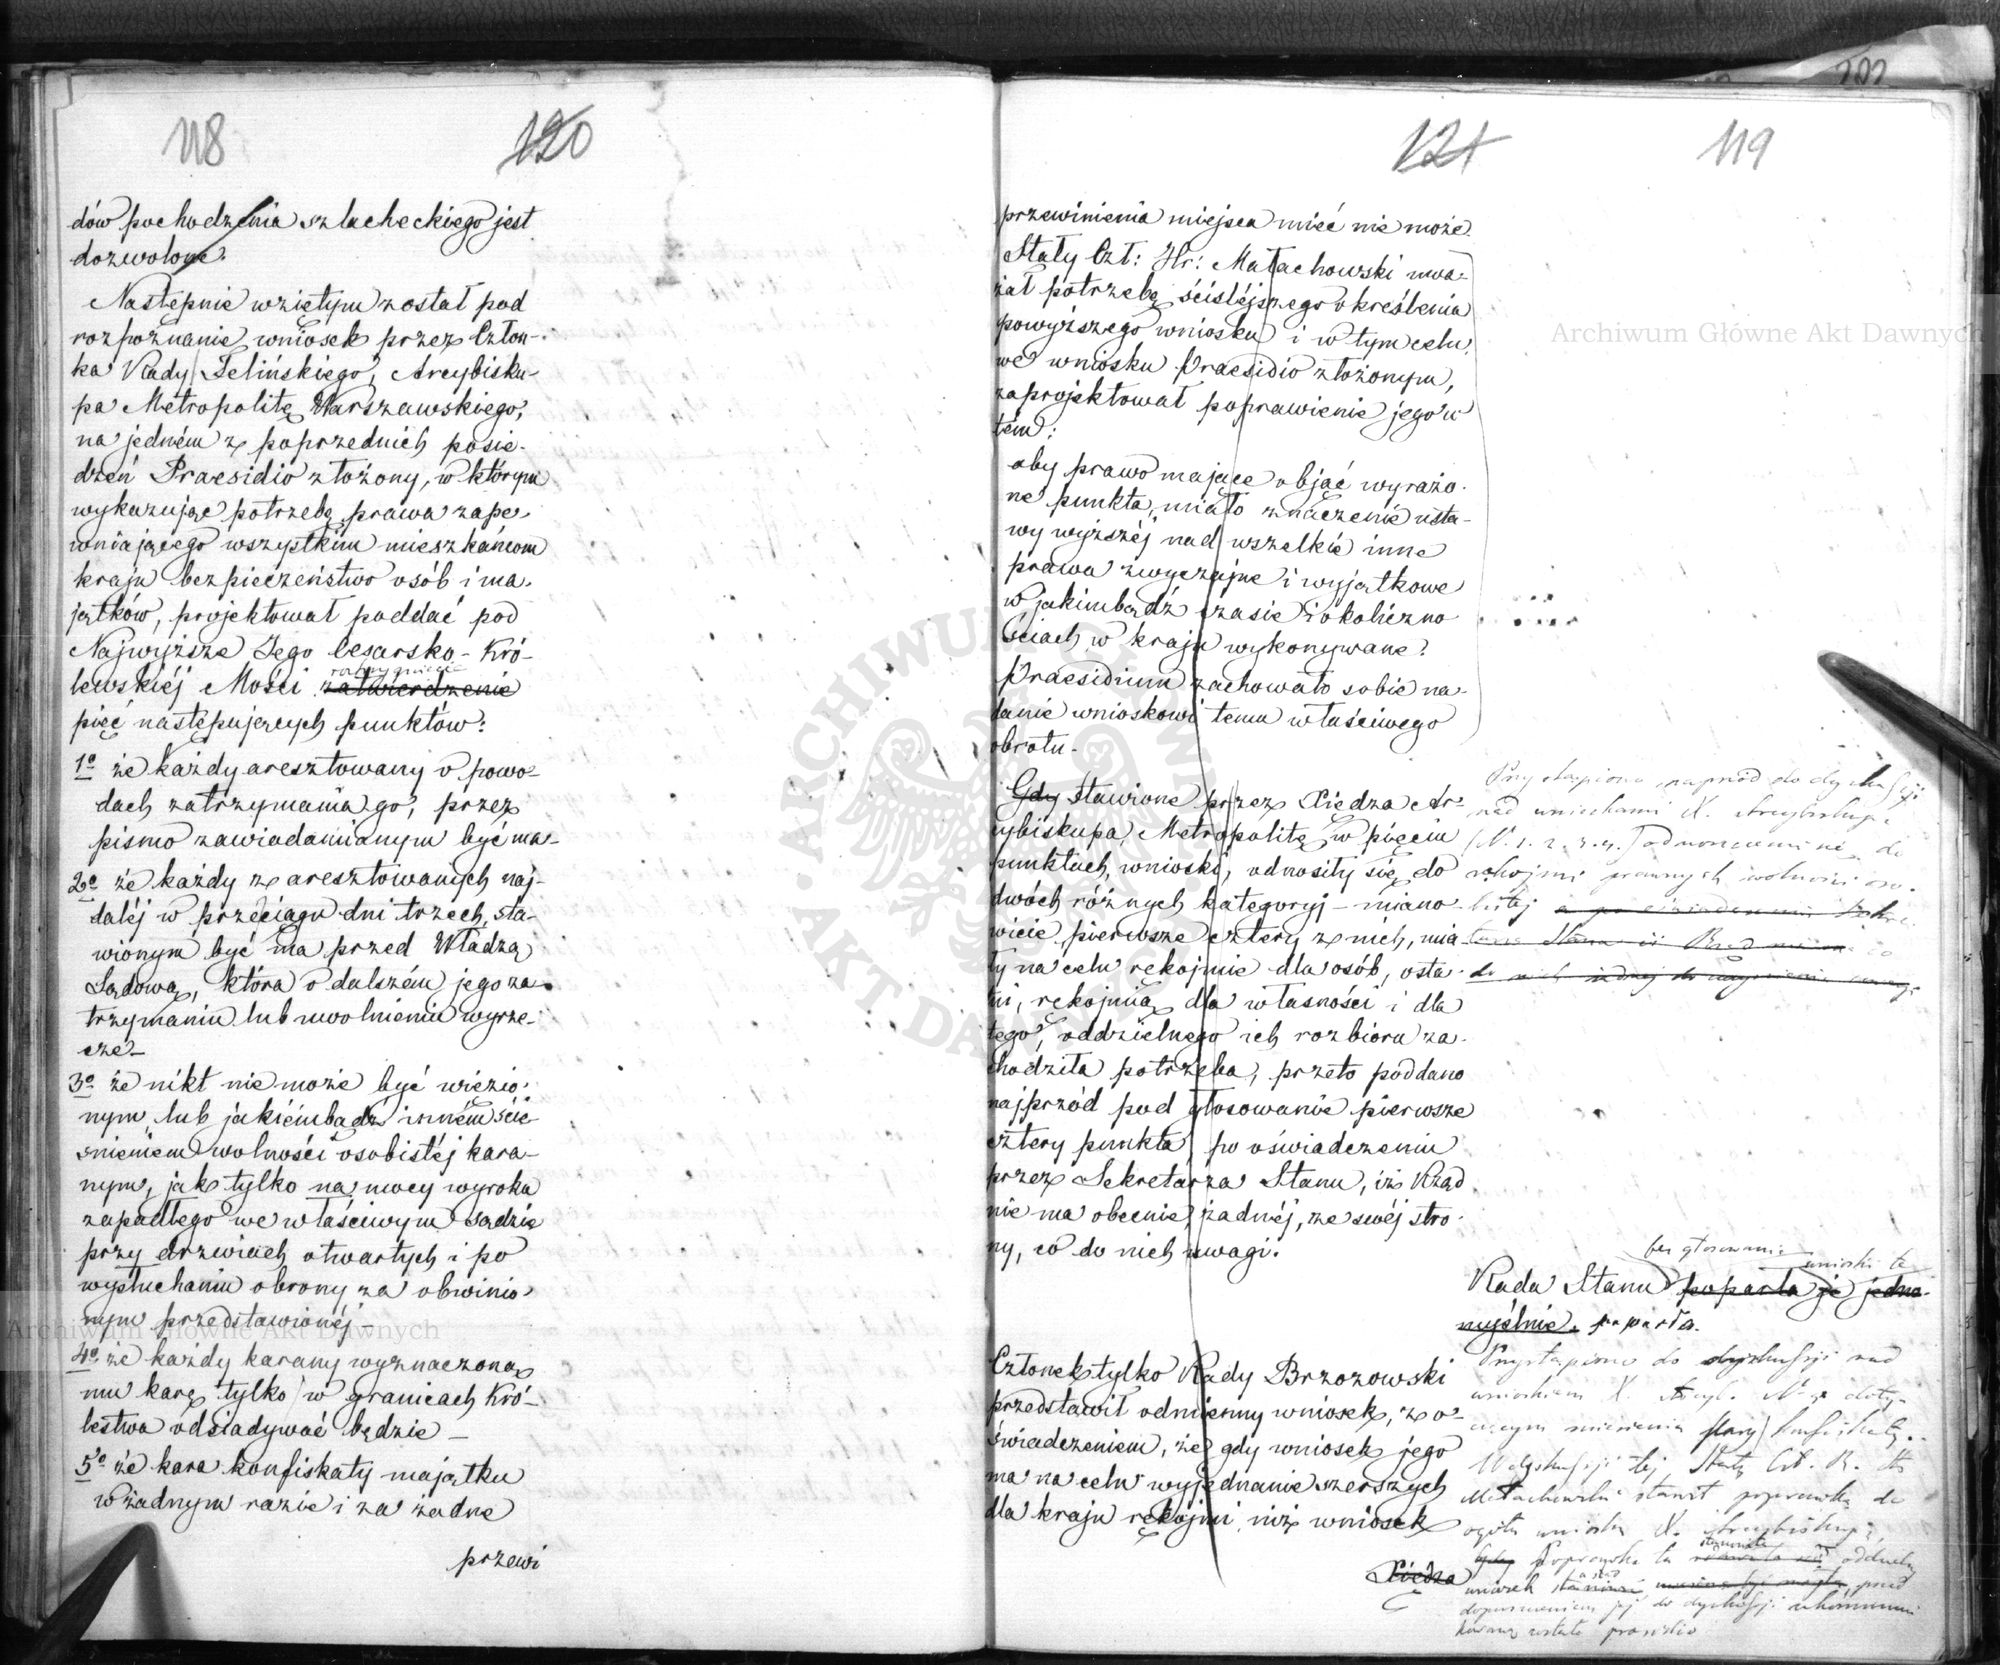 118
120
dów pochodzenia szlacheckiego jest
dozwolone.
Następnie wziętym został pod
rozpoznanie wniosek przez Człon-
ka Rady Felińskiego, Arcybisku-
pa Metropolitę Warszawskiego,
na jedném z poprzednich posie-
dzeń Praesidio złożony, w którym
wykazując potrzebę prawa zape-
wniającego wszystkim mieszkańcom
kraju bezpieczeństwo osób i ma-
jątków, projektował poddać pod
Najwyższe Jego Cesarsko-Kró-
lewskiéj Mości zatwierdzenie
pięć następujących punktów:
1º że każdy aresztowany o powo-
dach zatrzymania go, przez
pismo zawiadamianym być ma-
2º że każdy z aresztowanych naj-
daléj w przeciągu dni trzech, sta-
wionym być ma przed Władzą
Sądową, która o dalszém jego za-
trzymaniu lub uwolnieniu wyrze-
cze-
3º że nikt nie może być więzio-
nym lub jakiémbądź inném ście-
śnieniem wolności osobistéj kara-
nym, jak tylko na mocy wyroku
zapadłego we właściwym Sądzie
przy drzwiach otwartych i po
wysłuchaniu obrony za obwinio-
nym przedstawionéj-
4º że każdy karany wyznaczoną
mu karę tylko w granicach Kró-
lestwa odsiadywać będzie-
5º że kara konfiskaty majątku
w żadnym razie i za żadne
przewi
121
119
przewinienia miejsca mieć nie może.
Stały Czł: Hr: Małachowski uwa-
żał potrzebę ściślejszego określenia
powyższego wniosku i w tym celu
we wniosku Praesidio złożonym,
zaprojektował poprawienie jego w
tém:
aby prawo mające objąć wyrażo-
ne punkta, miało znaczenie usta-
wy wyższéj nad wszelkie inne
prawa zwyczajne i wyjątkowe
w jakimbądź czasie i okoliczno
ściach w kraju wykonywane?
Praesidium zachowało sobie na-
danie wnioskowi temu właściwego
obrotu-
Gdy stawione przez Xiędza Ar-
cybiskupa Metropolitę w pięciu
punktach, wnioski, odnosiły się do
dwóch różnych kategoryj - miano-
wicie pierwsze cztery z nich, mia
ły na celu rękojmie dla osób, osta-
tni, rękojmią dla własności i dla
tego, oddzielnego ich rozbioru za-
chodziła potrzeba, przeto poddano
najprzód pod głosowanie pierwsze
cztery punkta po oświadczeniu
przez Sekretarza Stanu, iż Rząd
nie ma obecnie żadnéj, ze swéj stro-
ny, co do nich uwagi.
Przystąpiono naprzód do dyskussji
nad wnioskami X. Arcybiskupa
(N. 1. 2. 3. 4.) odnoszącemi się do
rękojmi prawnych wolności oso-
bistej
bez głosowania
wnioski te
Rada Stanu poparła je jedno-
myślnie. poparła.
Członek tylko Rady Brzozowski
przedstawił odmienny wniosek, z o-
świadczeniem, że gdy wniosek jego
ma na celu wyjednanie szerszych
dla kraju rękojmi niż wniosek
Xiędza
Przystąpiono do dyskussji nad
wnioskiem X. Arcyb. Nº 5 doty-
czącym zniesienia kary konfiskaty.
W dyskussji tej Stały Czł. R. Hr
Małachowski stawił poprawkę do
ogółu wniosku X. Arcybiskupa,
Gdy Poprawka ta stanowiła oddzielny
wniosek
dopuszczeniem jej do dyskussji
Archiwum Główne Akt Dawnych
Archiwum Główne Akt Dawnych
ARCHIWUM GŁÓWNE AKT DAWNYCH